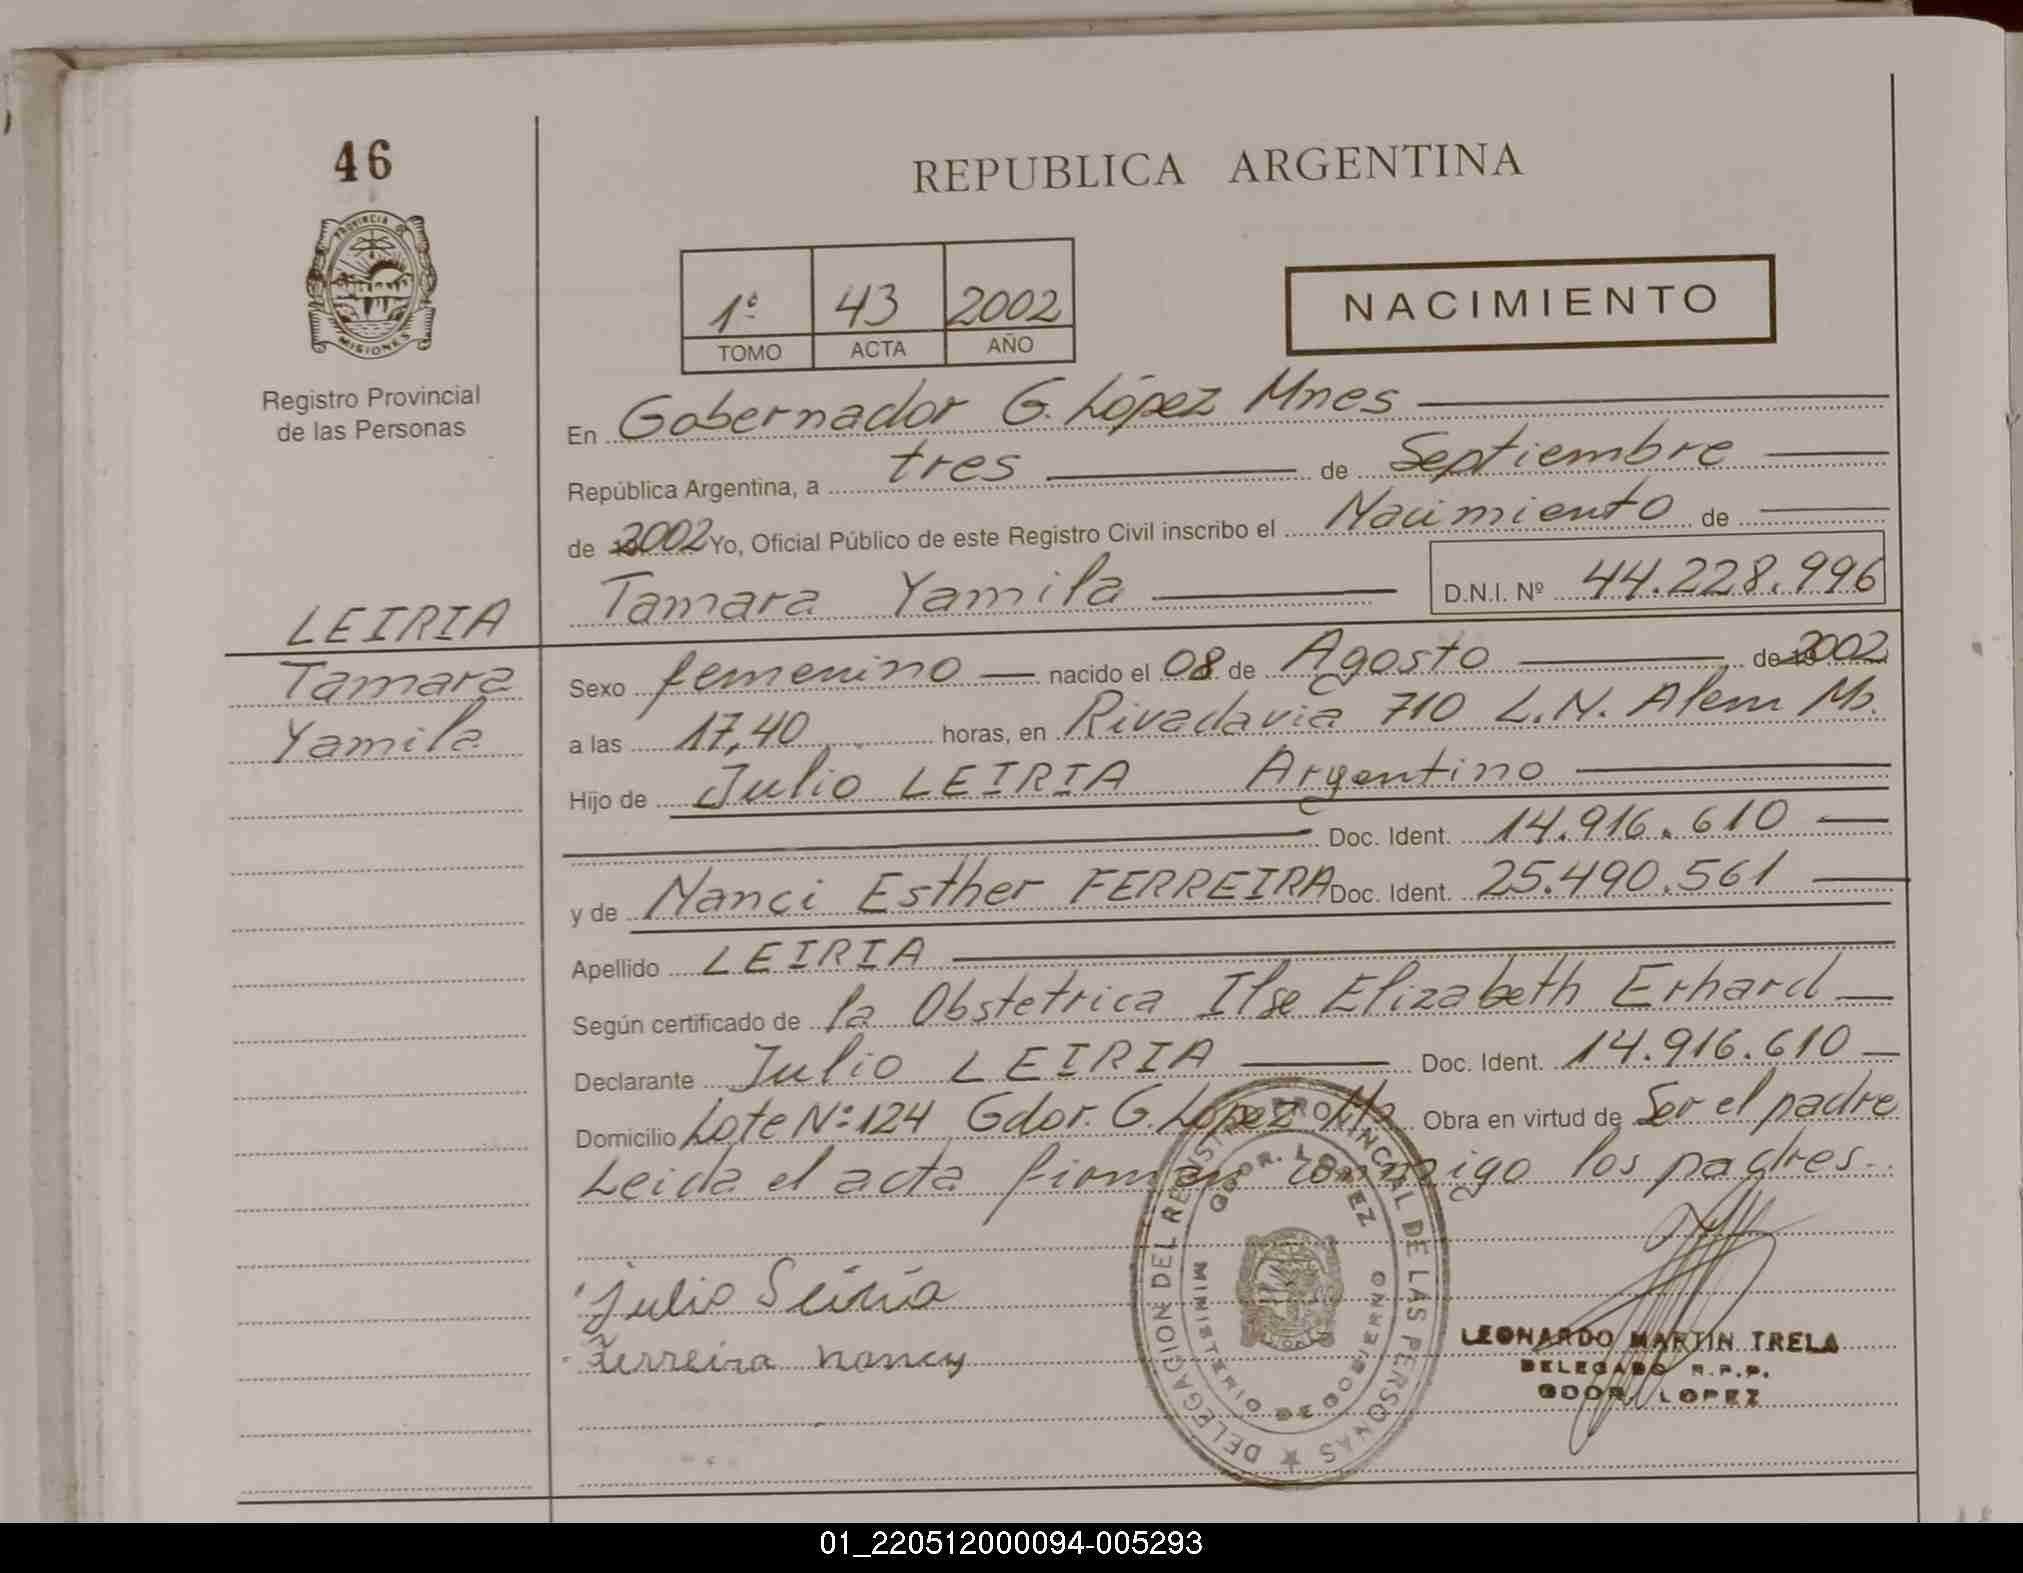 46
REPUBLICA ARGENTINA
PROVINCIA DE
MISIONES
1º 43 2002
TOMO ACTA AÑO
NACIMIENTO
Registro Provincial
de las Personas
En Gobernador G. López Mnes
República Argentina, a tres de Septiembre
de 2002 Yo, Oficial Público de este Registro Civil inscribo el Nacimiento de
Tamara Yamila D.N.I. Nº 44.228.996
LEIRIA
Tamara
Yamila
Sexo femenino nacido el 08 de Agosto de 2002
a las 17,40 horas, en Rivadavia 710 L.N. Alem Ms.
Hijo de Julio LEIRIA Argentino
Doc. Ident. 14.916.610
y de Nanci Esther FERREIRA Doc. Ident. 25.490.561
Apellido LEIRIA
Según certificado de la Obstetrica Ilse Elizabeth Erhard
Declarante Julio LEIRIA Doc. Ident. 14.916.610
Domicilio Lote Nº 124 Gdor. G. López Obra en virtud de Ser el padre
Leida el acta firman conmigo los padres.
DELEGACION DEL REGISTRO PROVINCIAL DE LAS PERSONAS
GDOR. LOPEZ
MINISTERIO DE GOBIERNO
Julio Leiria
Ferreira nancy
LEONARDO MARTIN TRELA
DELEGADO R.P.P.
GDOR. LOPEZ
01_220512000094-005293